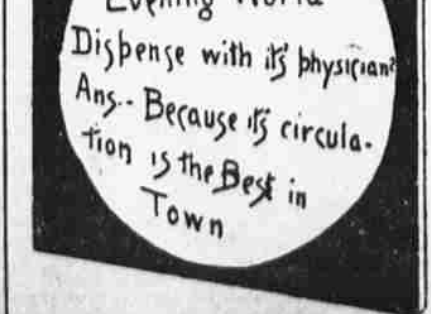 Evening World
Dispense with it's physician?
Ans.- Because it's circula-
tion is the Best in
Town